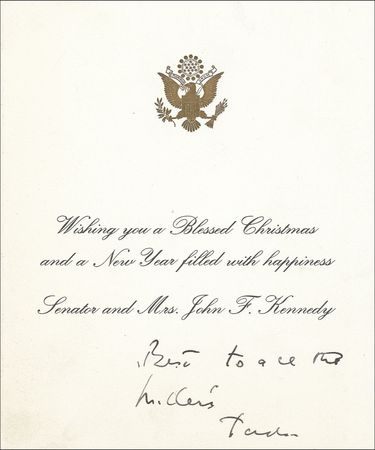 Wishing you a Blessed Christmas
and a New Year filled with happiness
Senator and Mrs. John F. Kennedy
Best to all the
Millers